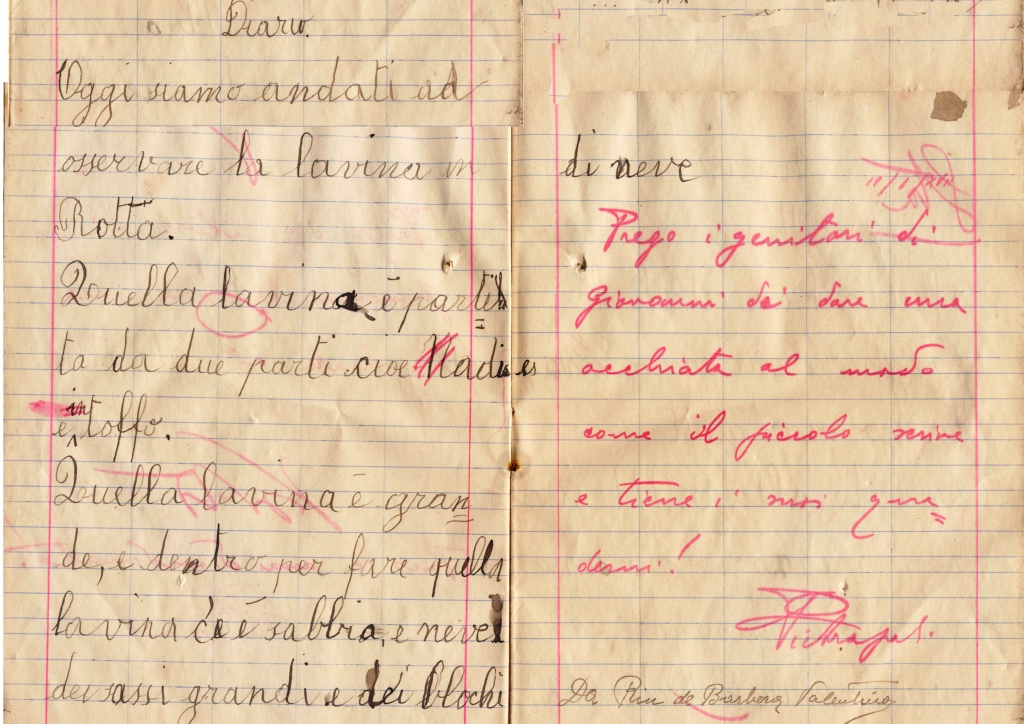 Diario.
Oggi siamo andati ad
osservare la lavina in
Rotta.
Quella lavina è parti
ta da due parti cioe
e, in toffo.
Quella lavina è gran
de, e dentro per fare quella
lavina c'è è sabbia, e neve
dei sassi grandi e dei blochi
di neve
Prego i genitori di
Giovanni di dare una
occhiata al modo
come il piccolo scrive
e tiene i suoi qua
derni!
Da Rin de Barbera Valentino